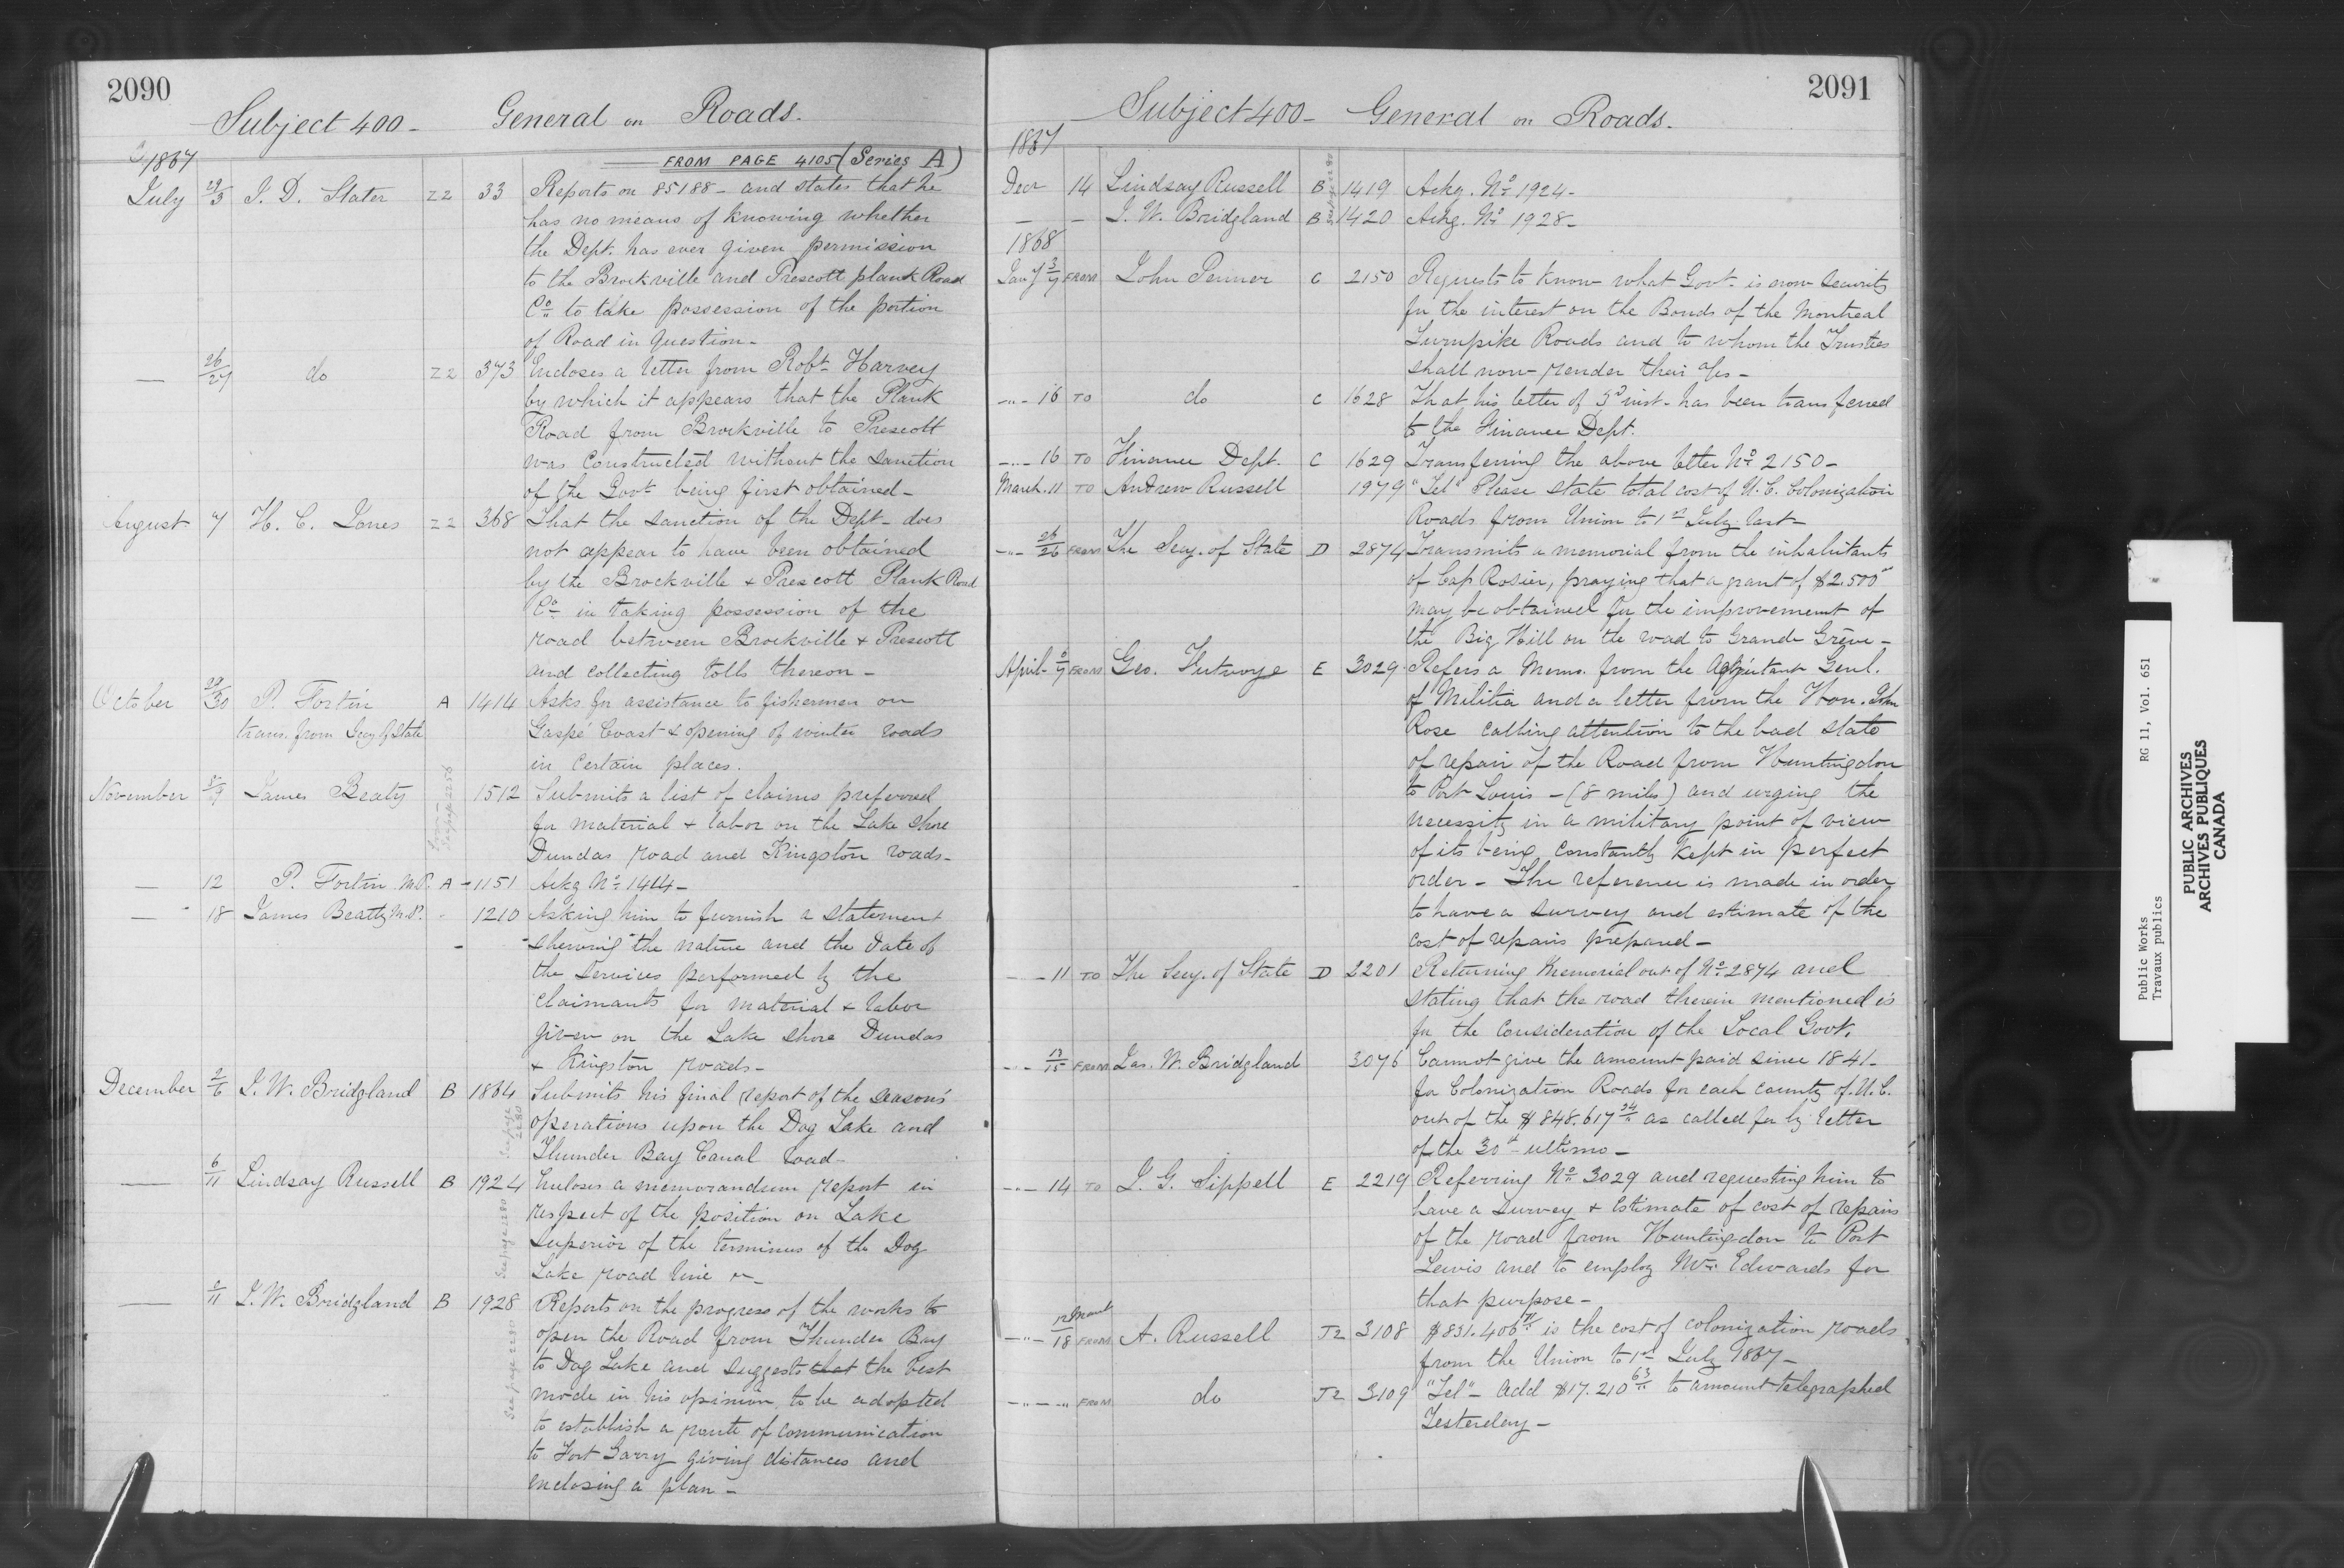 2090
Subject 400 - General on Roads.
1867
FROM PAGE 4105 (Series A)
July 29/3 J. D. Slater Z2 33 Reports on 85188 - and states that he
has no means of knowing whether
the Dept. has ever given permission
to the Brockville and Prescott plank Road
Co to take possession of the portion
of Road in question -
— 26/27 do Z2 373 Encloses a letter from Robt Harvey
by which it appears that the Plank
Road from Brockville to Prescott
was constructed without the sanction
of the Govt being first obtained -
August 7 H. C. Jones Z2 368 That the sanction of the Dept - does
not appear to have been obtained
by the Brockville + Prescott Plank Road
Co in taking possession of the
road between Brockville + Prescott
and collecting tolls thereon -
October 29/30 P. Fortin A 1414 Asks for assistance to fishermen on
trans. from Secy of State Gaspé Coast + opening of winter roads
in certain places.
November 8/9 James Beaty 1512 Submits a list of claims preferred
See page 2256
for material + labor on the Lake Shore
Dundas road and Kingston roads -
— 12 P. Fortin M.P. A - 1151 Ackg No 1414 -
— 18 James Beatty M.P. 1210 Asking him to furnish a statement
shewing the nature and the date of
the services performed by the
claimants for material + labor
given on the Lake Shore Dundas
+ Kingston roads -
December 2/6 J. W. Bridgland B 1864 Submits his final report of the season's
See page 2280
operations upon the Dog Lake and
Thunder Bay Canal road -
— 6/11 Lindsay Russell B 1924 Encloses a memorandum report in
See page 2280
respect of the position on Lake
Superior of the terminus of the Dog
Lake road line
— 2/11 J. W. Bridgland B 1928 Reports on the progress of the works to
See page 2280
open the Road from Thunder Bay
to Dog Lake and suggests that the best
mode in his opinion to be adopted
to establish a route of communication
to Fort Garry giving distances and
enclosing a plan -
2091
Subject 400 - General on Roads.
1867
Decr 14 Lindsay Russell B 1419 Ackg. No 1924 -
See page 2280
— - J. W. Bridgland B 1420 Ackg. No 1928 -
1868
Jany 3/7 FROM John Penner C 2150 Requests to know what Govt. is now security
for the interest on the Bonds of the Montreal
Turnpike Roads and to whom the Trustees
shall now render their a/cs -
-"- 16 TO do C 1628 That his letter of 3d inst - has been transferred
to the Finance Dept.
-"- 16 TO Finance Dept. C 1629 Transferring the above letter No 2150 -
March 11 TO Andrew Russell 1979 "Tel" Please state total cost of U. C. Colonization
Roads from Union to 1st July last -
-"- 26/26 FROM The Secy. of State D 2874 Transmits a memorial from the inhabitants
of Cap Rosier, praying that a grant of $2.500
may be obtained for the improvement of
the Big Hill on the road to Grande Grève -
April 6/7 FROM Geo. Futvoye E 3029 Refers a Memo. from the Adjutant Genl.
of Militia and a letter from the Hon. John
Rose calling attention to the bad state
of repair of the Road from Huntingdon
to Port Louis - (8 miles) and urging the
necessity in a military point of view
of its being constantly kept in perfect
order - The reference is made in order
to have a survey and estimate of the
cost of repairs prepared -
- - 11 TO The Secy. of State D 2201 Returning Memorial out of No 2874 and
stating that the road therein mentioned is
for the consideration of the Local Govt.
-"- 13/15 FROM Jas. W. Bridgland 3076 Cannot give the amount paid since 1841 -
for Colonization Roads for each county of U. C.
out of the $848.617 34 as called for by letter
of the 30th ultimo -
-"- 14 TO J. G. Sippell E 2219 Referring No 3029 and requesting him to
have a survey + Estimate of cost of repairs
of the road from Huntingdon to Port
Lewis and to employ Mr. Edwards for
that purpose -
-"- 12 March/18 FROM A. Russell J2 3108 $831.406 is the cost of colonization roads
from the Union to 1st July 1867 -
-"- -"- FROM do J2 3109 "Tel" - add $17.210 63 to amount telegraphed
Yesterday -
Public Works RG 11, Vol. 651
Travaux publics
PUBLIC ARCHIVES
ARCHIVES PUBLIQUES
CANADA